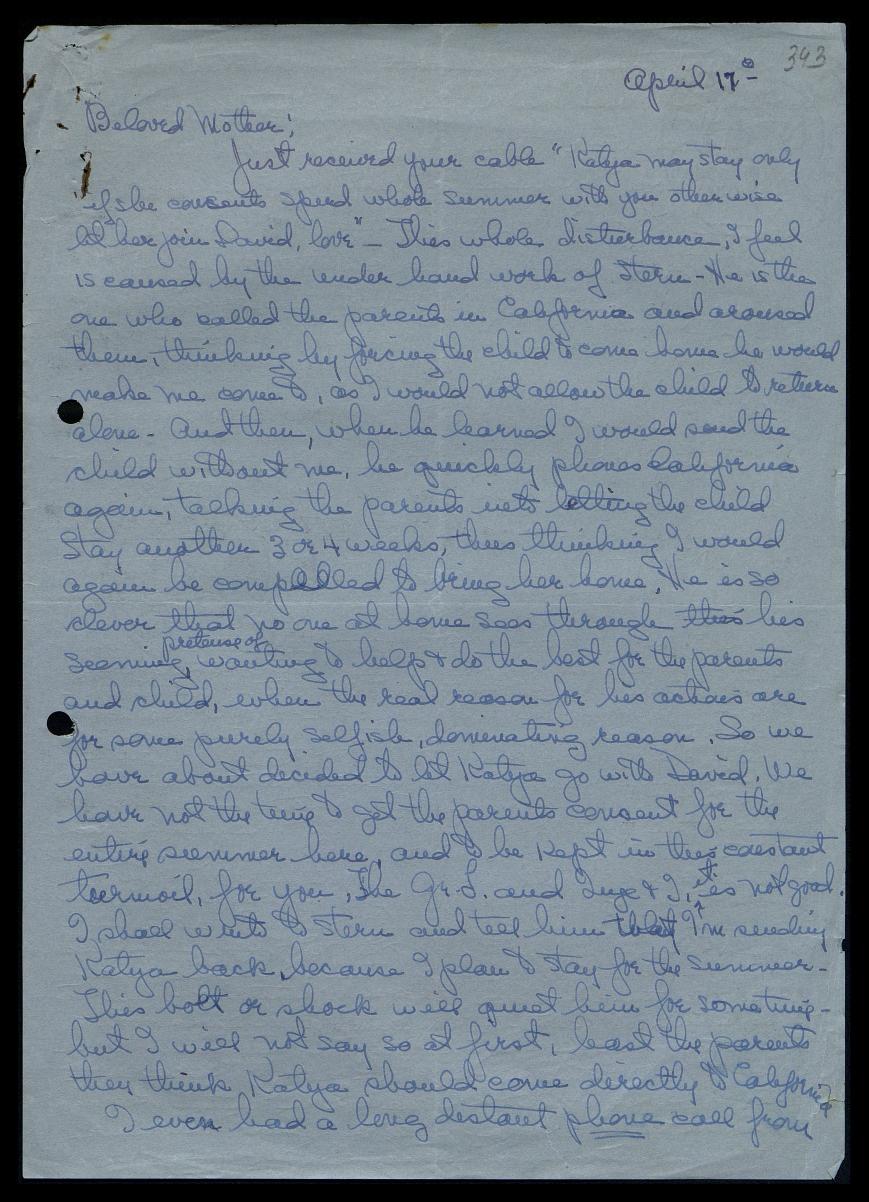 393
April 17th
Beloved Mother;
Just received your cable "Katya may stay only
"if she consents spend whole summer with you otherwise
let her join David, love" - This whole disturbance, I feel
is caused by the under hand work of Stern - He is the
one who called the parents in California and aroused
them, thinking by forcing the child to come home he would
make me come to, as I would not allow the child to return
alone - And then, when he learned I would send the
child without me, he quickly phones California
again, talking the parents into letting the child
stay another 3 or 4 weeks, thus thinking I would
again be compelled to bring her home. He is so
clever that no one at home sees through this his
seeming pretense of wanting to help & do the best for the parents
and child, when the real reason for his actions are
for some purely selfish, dominating reason. So we
have about decided to let Katya go with David. We
have not the time to get the parents consent for the
entire summer here, and to be kept in this constant
turmoil, for you, the Gr. S. and Inge & I, it is not good.
I shall write to Stern and tell him that I'm sending
Katya back, because I plan to stay for the summer -
This bolt or shock will quiet him for sometime -
but I will not say so at first, least the parents
they think Katya should come directly to California
I even had a long distant phone call from